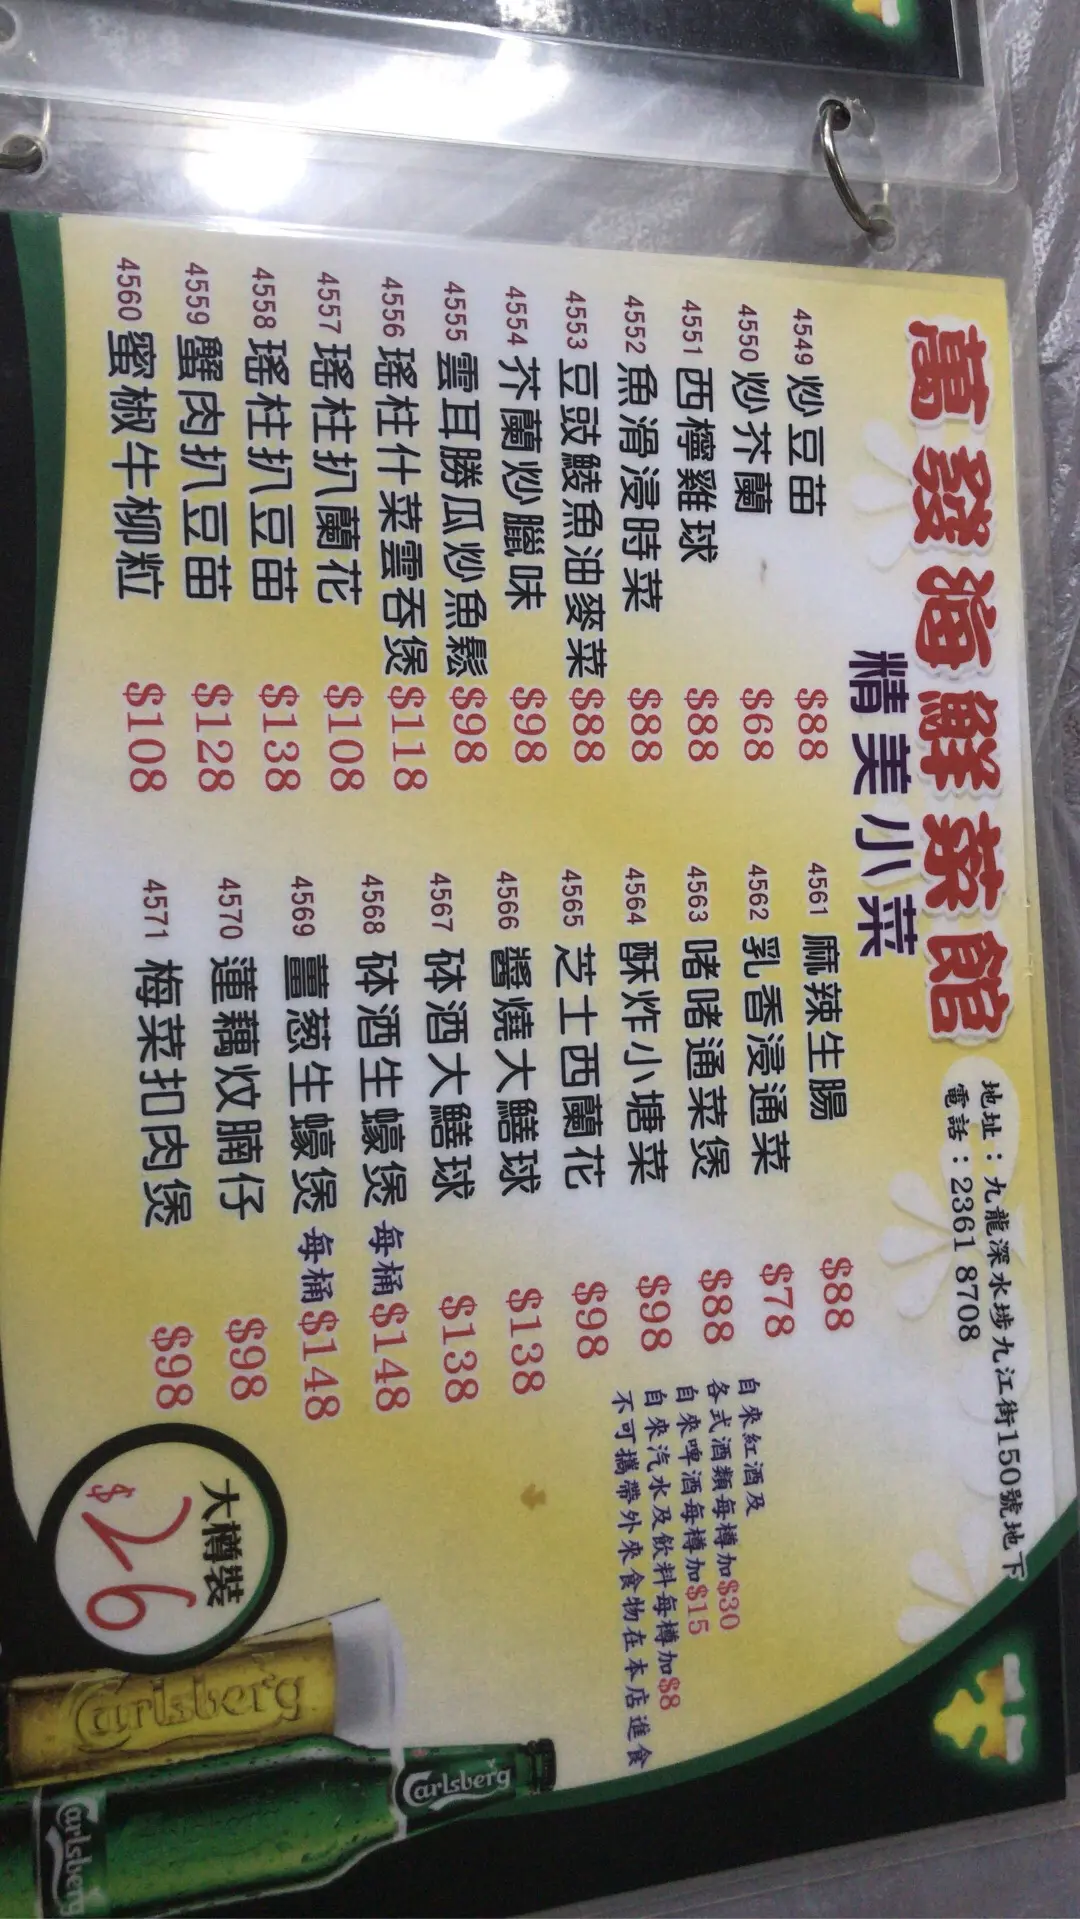 萬發海鮮菜館
地址：九龍深水埗九江街150號地下
電話：2361 8708
精美小菜
4549 炒豆苗 $88
4550 炒芥蘭 $68
4551 西檸雞球 $88
4552 魚滑浸時菜 $88
4553 豆豉鯪魚油麥菜 $88
4554 芥蘭炒臘味 $98
4555 雲耳勝瓜炒魚鬆 $98
4556 瑤柱什菜雲吞煲 $118
4557 瑤柱扒蘭花 $108
4558 瑤柱扒豆苗 $138
4559 蟹肉扒豆苗 $128
4560 蜜椒牛柳粒 $108
4561 麻辣生腸 $88
4562 乳香浸通菜 $78
4563 啫啫通菜煲 $88
4564 酥炸小塘菜 $98
4565 芝士西蘭花 $98
4566 醬燒大鱔球 $138
4567 砵酒大鱔球 $138
4568 砵酒生蠔煲 每桶 $148
4569 薑葱生蠔煲 每桶 $148
4570 蓮藕炆腩仔 $98
4571 梅菜扣肉煲 $98
自來紅酒及
各式酒類每樽加$30
自來啤酒每樽加$15
自來汽水及飲料每樽加$8
不可攜帶外來食物在本店進食
大樽裝
$26
Carlsberg
Carlsberg
Carlsberg